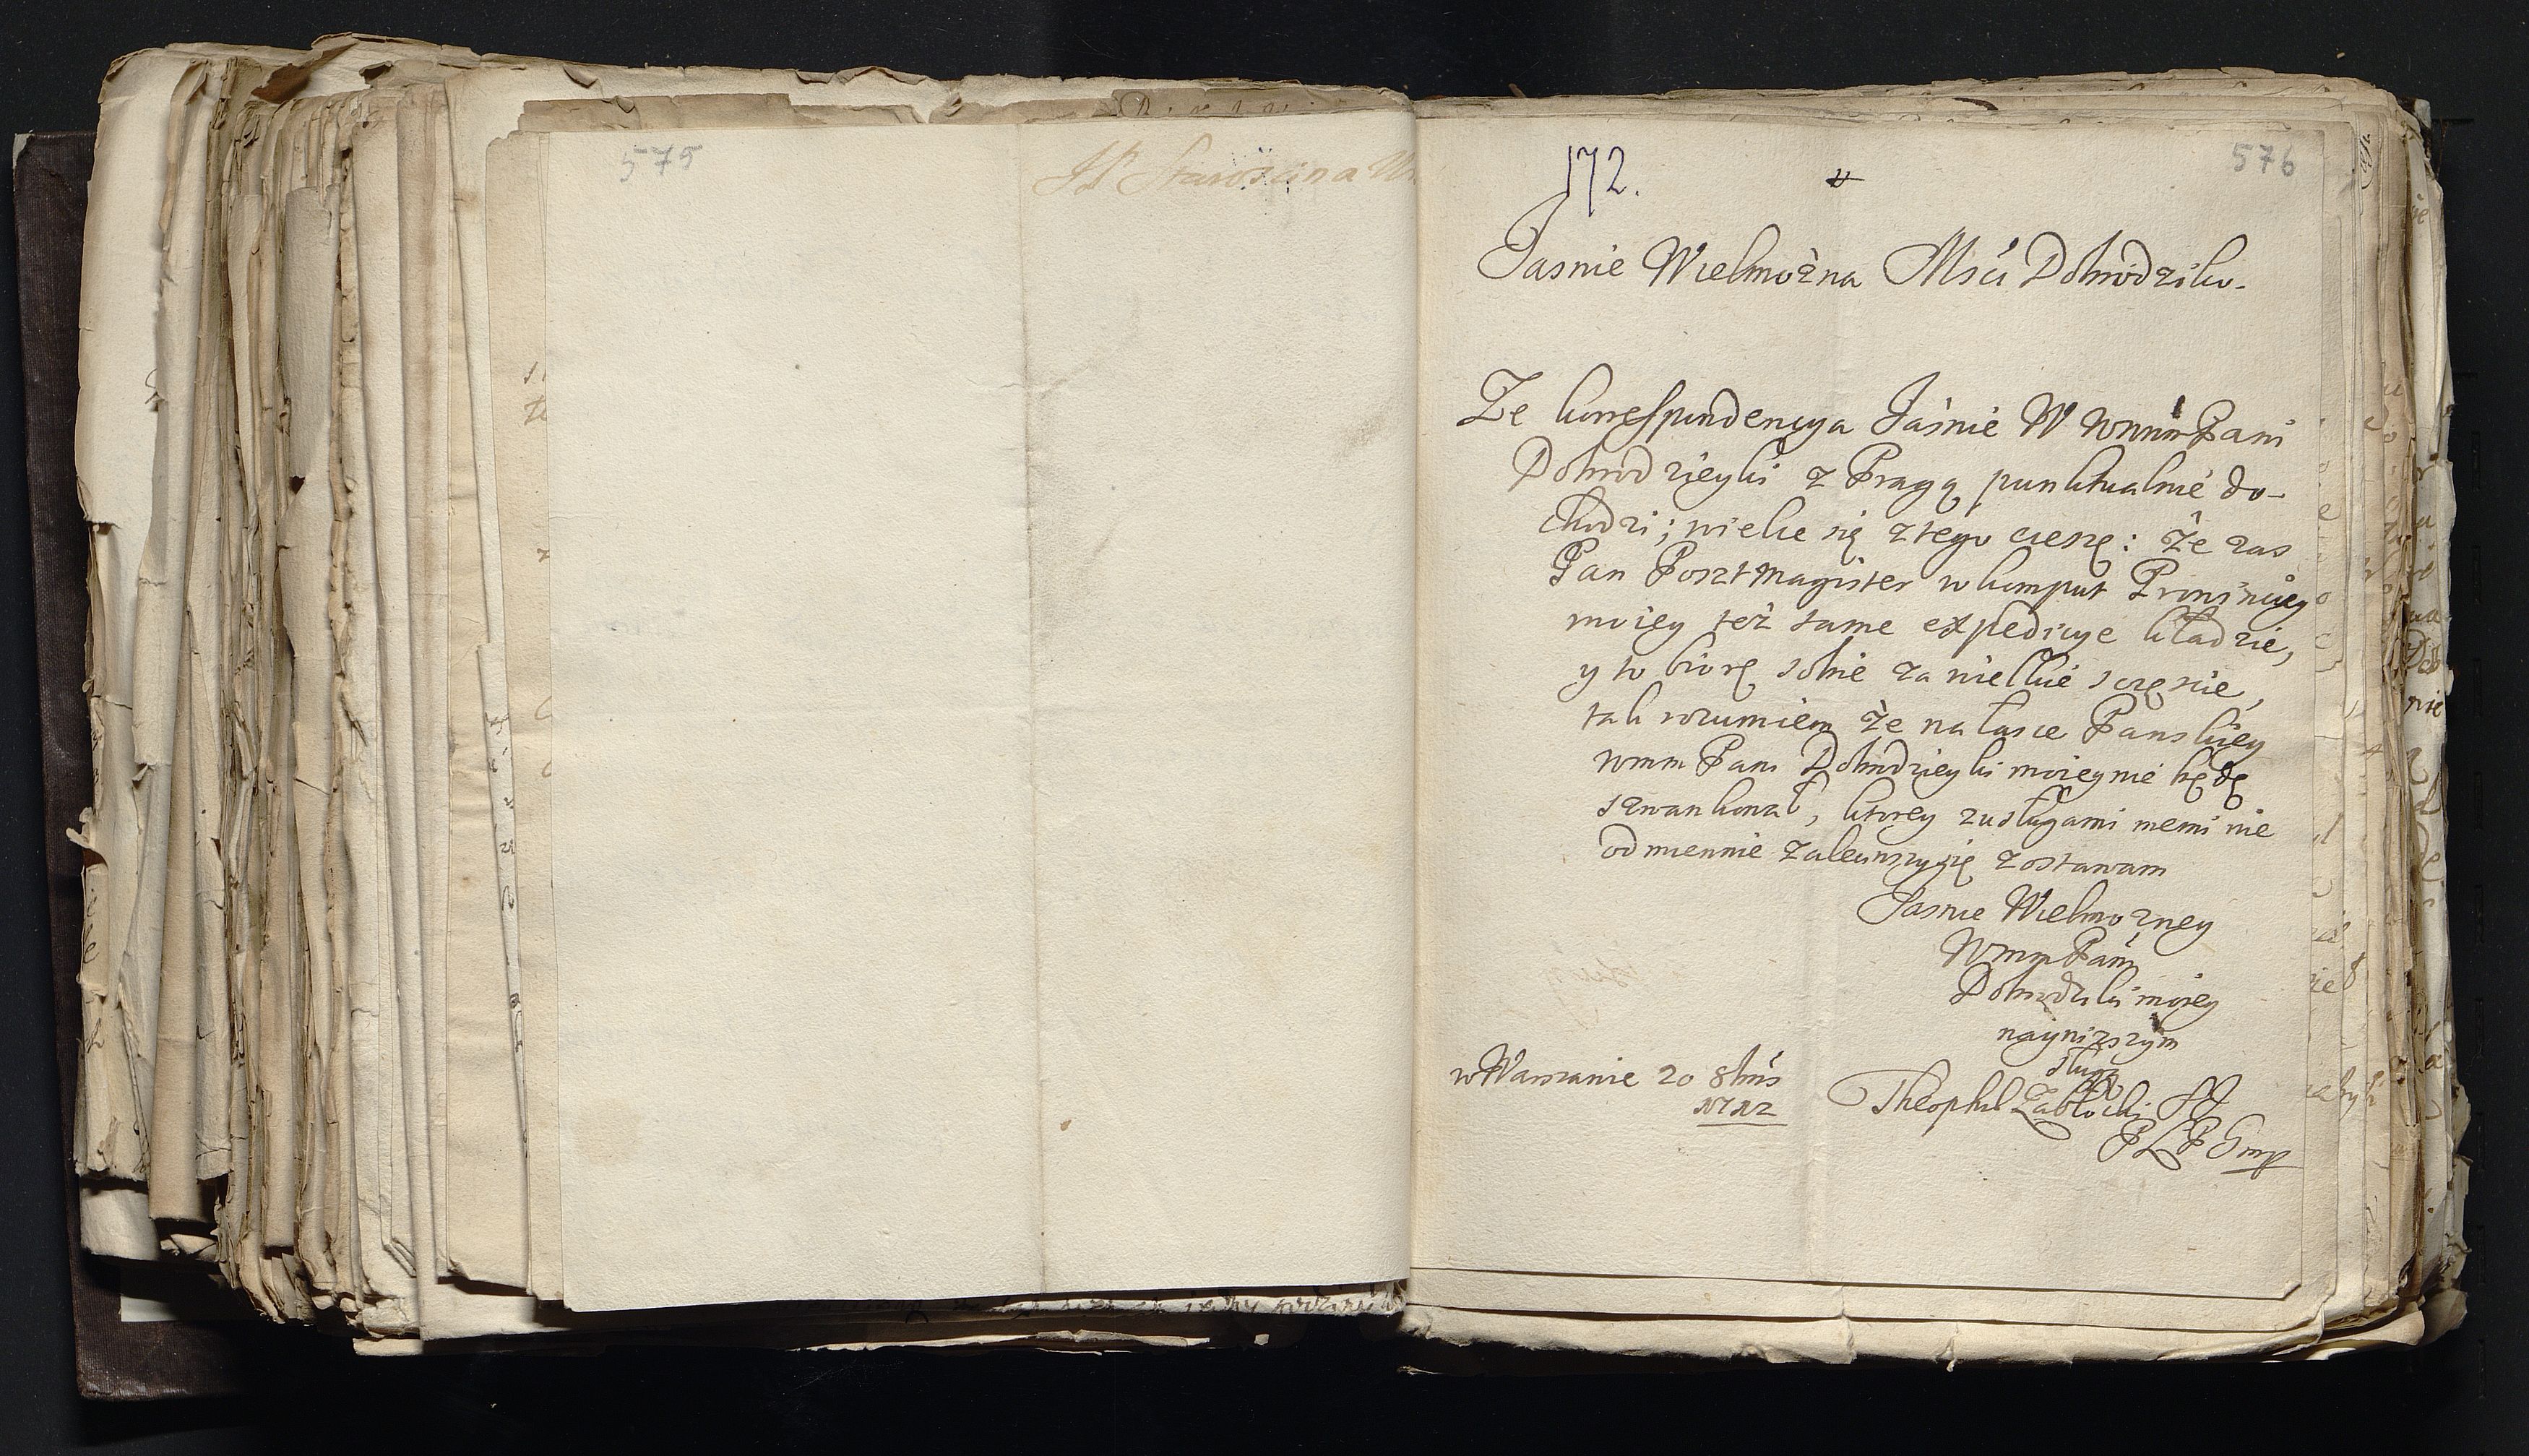 575
JP Starościna
172.
576
Jasnie Wielmożna Mścia Dobrodziko.
Że korrespondencya Jaśnie W WMM Pani
Dobrodzieyki z Pragą punktualnie do-
chodzi; wielce się z tego cieszę: Że zas
Pan Posztmagister w komput Prowincyey
moiey też same expedicye kładzie,
y to biorę sobie za wielkie sczęscie,
tak rozumiem że na łasce Panskiey
WMM Pani Dobrodzieyki moiey nie będę
szwankował, ktorey zusługami memi nie
odmiennie zaleciwszy się zostawam
Jasnie Wielmozney
WMM Pani
Dobrodziki moiey
nayniższym
sługą
w Warszawie 20 8bris
1712
Theophil Zabłocki SJ
PLPG mp